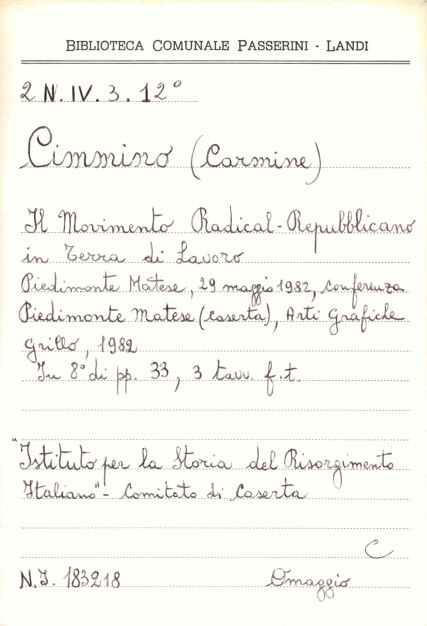 BIBLIOTECA COMUNALE PASSERINI - LANDI
2 N. IV. 3. 12°
Cimmino (Carmine)
Il Movimento Radical-Repubblicano
in Terra di Lavoro
Piedimonte Matese, 29 maggio 1982, conferenza
Piedimonte Matese (Caserta), Arti Grafiche
Grillo, 1982
In 8° di pp. 33, 3 tavv. f.t.
"Istituto per la Storia del Risorgimento
Italiano" - Comitato di Caserta
C
N.I. 183218 Omaggio